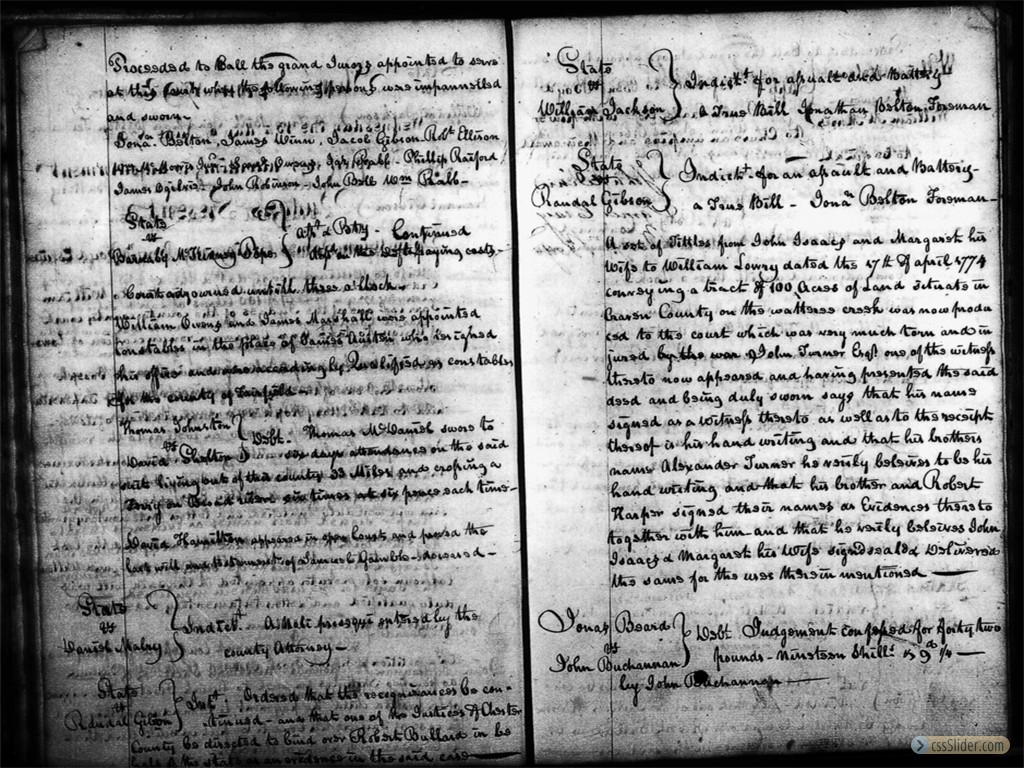 Proceeded to Ball the grand Jurors appointed to serve
at this County when the following persons were impannelled
and sworn
Jonan Bolton, James Winn, Jacob Gibson, Robt Ellison
Phillip Raiford,
James Ogilvie, John Robinson, John Bell Wm Rabb
State
vs
Barnaby Pope
Asst & Batry - Continued
on the Deft paying costs
Court adjourned untill three o clock
William Owens and James Marshall were appointed
Constables in the place of James Austin who resigned
his office and were accordingly Qualified as constables
for the county of Fairfield
Thomas Johnston
vs
David Shelton
Debt. Thomas McDaniel swore to
six days attendance on the said
suit living out of this county 33 Miles and crossing a
Ferry on Broad river six times at six pence each time
David Hamilton appeared in open Court and proved the
last will and testament of Samuel Gamble deceased
State
vs
Daniel Mabry
Indict. A Noli prosequi entered by the
county Attorney
State
vs
Randal Gibson
Indt. Ordered that the recognizances be con
tinued - and that one of the Justices of Chester
County be directed to bind over Robert Bullard in be
half of the State as an evidence in the said case
State
vs
William Jackson
Indictt for assualt and Battery
a True Bill Jonathan Belton Foreman
State
vs
Randal Gibson
Indictt. for an assault and Battery
a True Bill - Jonan Belton Foreman
A set of Tittles from John Isaacs and Margaret his
Wife to William Lowry dated the 17th of april 1774
conveying a tract of 100 Acres of Land situate in
Craven County on the watteree creek was now produ
ced to the court which was very much torn and in
jured by the war, & John Turner Esqr. one of the witness
thereto now appeared and having presented the said
deed and being duly sworn says that his name
signed as a witness thereto as well as to the receipt
thereof is his hand writing and that his brothers
name Alexander Turner he verily beleives to be his
hand writing and that his brother and Robert
Harper signed their names as Evidences thereto
together with him and that he verily beleives John
Isaacs & Margaret his Wife signd seald & Delivered
the same for the uses therein mentioned
Jonas Beard
vs
John Buchannan
Debt Judgement confessed for forty two
pounds - nineteen Shills & 9d 1/4
by John Buchannan
cssSlider.com